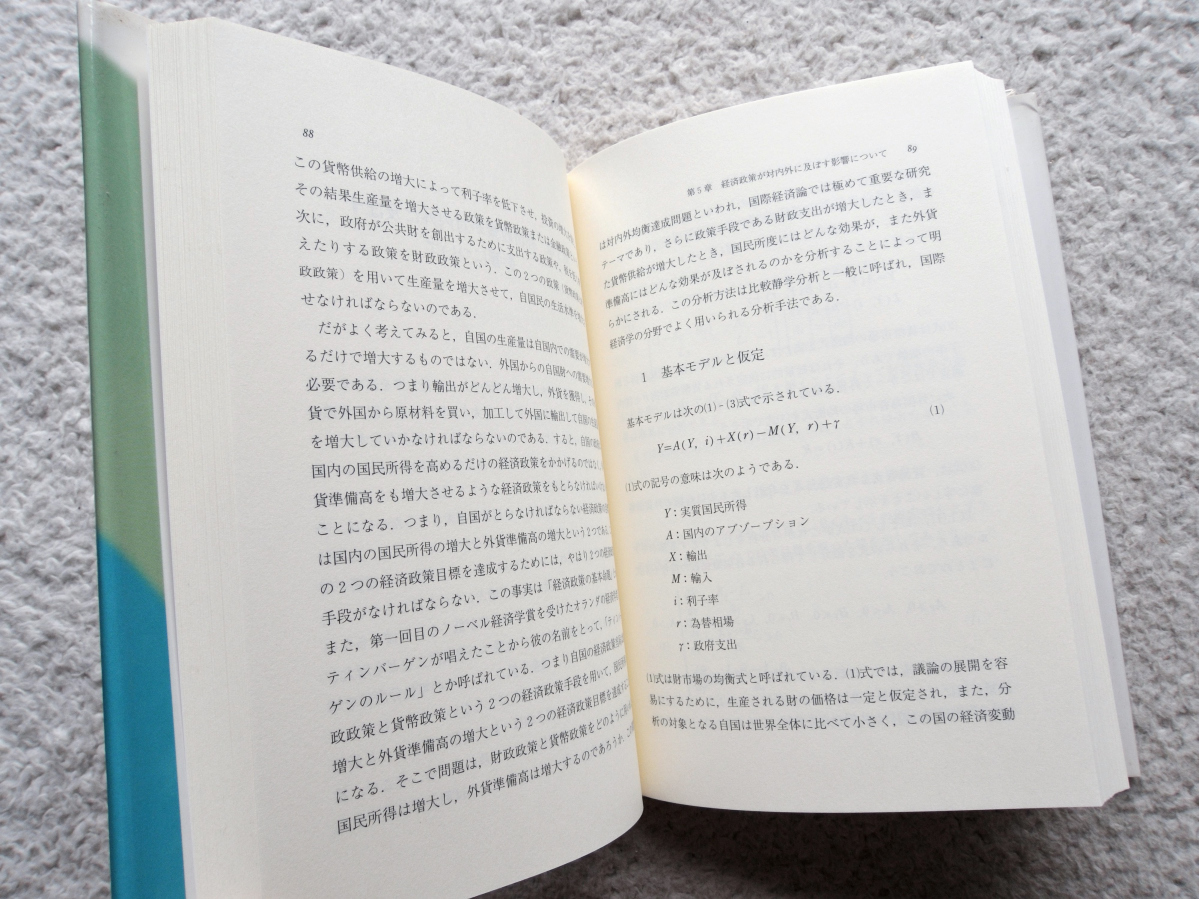 88
この貨幣供給の増大によって利子率を低下させ,
その結果生産量を増大させる政策を貨幣政策または
次に,政府が公共財を創出するために支出する政策や,
えたりする政策を財政政策という.この2つの政策
政政策)を用いて生産量を増大させて,自国民の生活水準を
せなければならないのである.
だがよく考えてみると,自国の生産量は自国内での
るだけで増大するものではない.外国からの自国財への
必要である.つまり輸出がどんどん増大し,外貨を獲得し,
貨で外国から原材料を買い,加工して外国に輸出して自国の
を増大していかなければならないのである.すると,自国の
国内の国民所得を高めるだけの経済政策をかかげるのではなく,
貨準備高をも増大させるような経済政策をもとらなければ
ことになる.つまり,自国がとらなければならない経済政策の
は国内の国民所得の増大と外貨準備高の増大という2つである.
の2つの経済政策目標を達成するためには,やはり2つの
手段がなければならない.この事実は「経済政策の基本命題」
また,第一回目のノーベル経済学賞を受けたオランダの
ティンバーゲンが唱えたことから彼の名前をとって,「ティン
ゲンのルール」とか呼ばれている.つまり自国の経済政策
政政策と貨幣政策という2つの経済政策手段を用いて,国民所得
増大と外貨準備高の増大という2つの経済政策目標を達成する
になる.そこで問題は,財政政策と貨幣政策をどのように
国民所得は増大し,外貨準備高は増大するのであろうか.
第5章 経済政策が対内外に及ぼす影響について 89
は対内外均衡達成問題といわれ,国際経済論では極めて重要な研究
テーマであり,さらに政策手段である財政支出が増大したとき,ま
た貨幣供給が増大したとき,国民所度にはどんな効果が,また外貨
準備高にはどんな効果が及ぼされるのかを分析することによって明
らかにされる.この分析方法は比較静学分析と一般に呼ばれ,国際
経済学の分野でよく用いられる分析手法である.
1 基本モデルと仮定
基本モデルは次の(1)-(3)式で示されている.
Y=A(Y, i)+X(r)−M(Y, r)+γ (1)
(1)式の記号の意味は次のようである.
Y:実質国民所得
A:国内のアブソープション
X:輸出
M:輸入
i:利子率
r:為替相場
γ:政府支出
(1)式は財市場の均衡式と呼ばれている.(1)式では,議論の展開を容
易にするために,生産される財の価格は一定と仮定され,また,分
析の対象となる自国は世界全体に比べて小さく,この国の経済変動